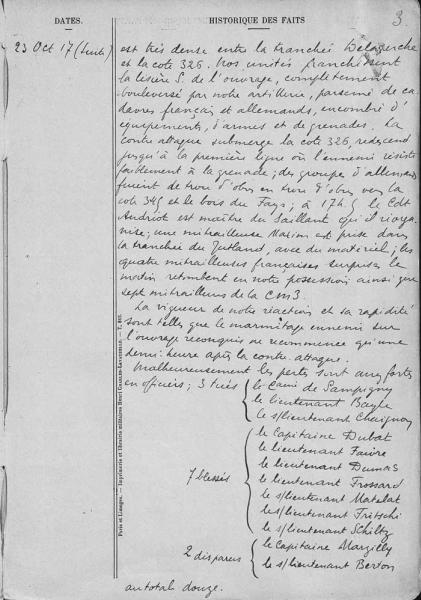 DATES.
HISTORIQUE DES FAITS
3.
23 Oct 17 (suite)
est très dense entre la tranchée
et la cote 326. Nos unités franchissent
la lisière S. de l'ouvrage, complètement
bouleversé par notre artillerie, parsemé de ca-
davres français et allemands, encombré d'
équipements, d'armes et de grenades. La
contre attaque submerge la cote 326, redescend
jusqu'à la première ligne où l'ennemi résiste
faiblement à la grenade; des groupes d'allemands
fuient de trou d'obus en trou d'obus vers la
cote 345 et le bois du Fays; à 17h.5 le Cdt
Andriot est maître du Saillant qu'il réorga-
nise; une mitrailleuse Maxim est prise dans
la tranchée du Jutland, avec du matériel; les
quatre mitrailleuses françaises surprises le
matin retombent en notre possession ainsi que
sept mitrailleurs de la CM3.
La vigueur de notre réaction et sa rapidité
sont telles que le marmitage ennemi sur
l'ouvrage reconquis ne recommence qu'une
demi-heure après la contre-attaque.
Malheureusement les pertes sont assez fortes
en officiers; 3 tués
le Caine de Sampigny
le lieutenant Bayle
le s/lieutenant Chaignon
7 blessés
le Capitaine Dubat
le lieutenant Faivre
le lieutenant Dumas
le lieutenant Frossard
le s/lieutenant Matelat
le s/lieutenant Fritschi
le s/lieutenant Schiltz
2 disparus
le Capitaine Margilly
le s/lieutenant Berton
au total: douze.
Paris et Limoges. — Imprimerie et librairie militaires Henri CHARLES-LAVAUZELLE.